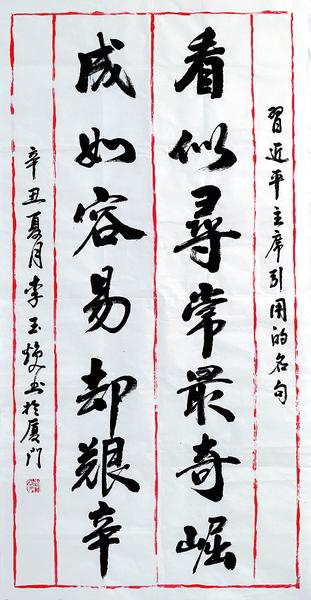 習近平主席引用的名句
看似尋常最奇崛
成如容易却艱辛
辛丑夏月李玉焕书於厦门